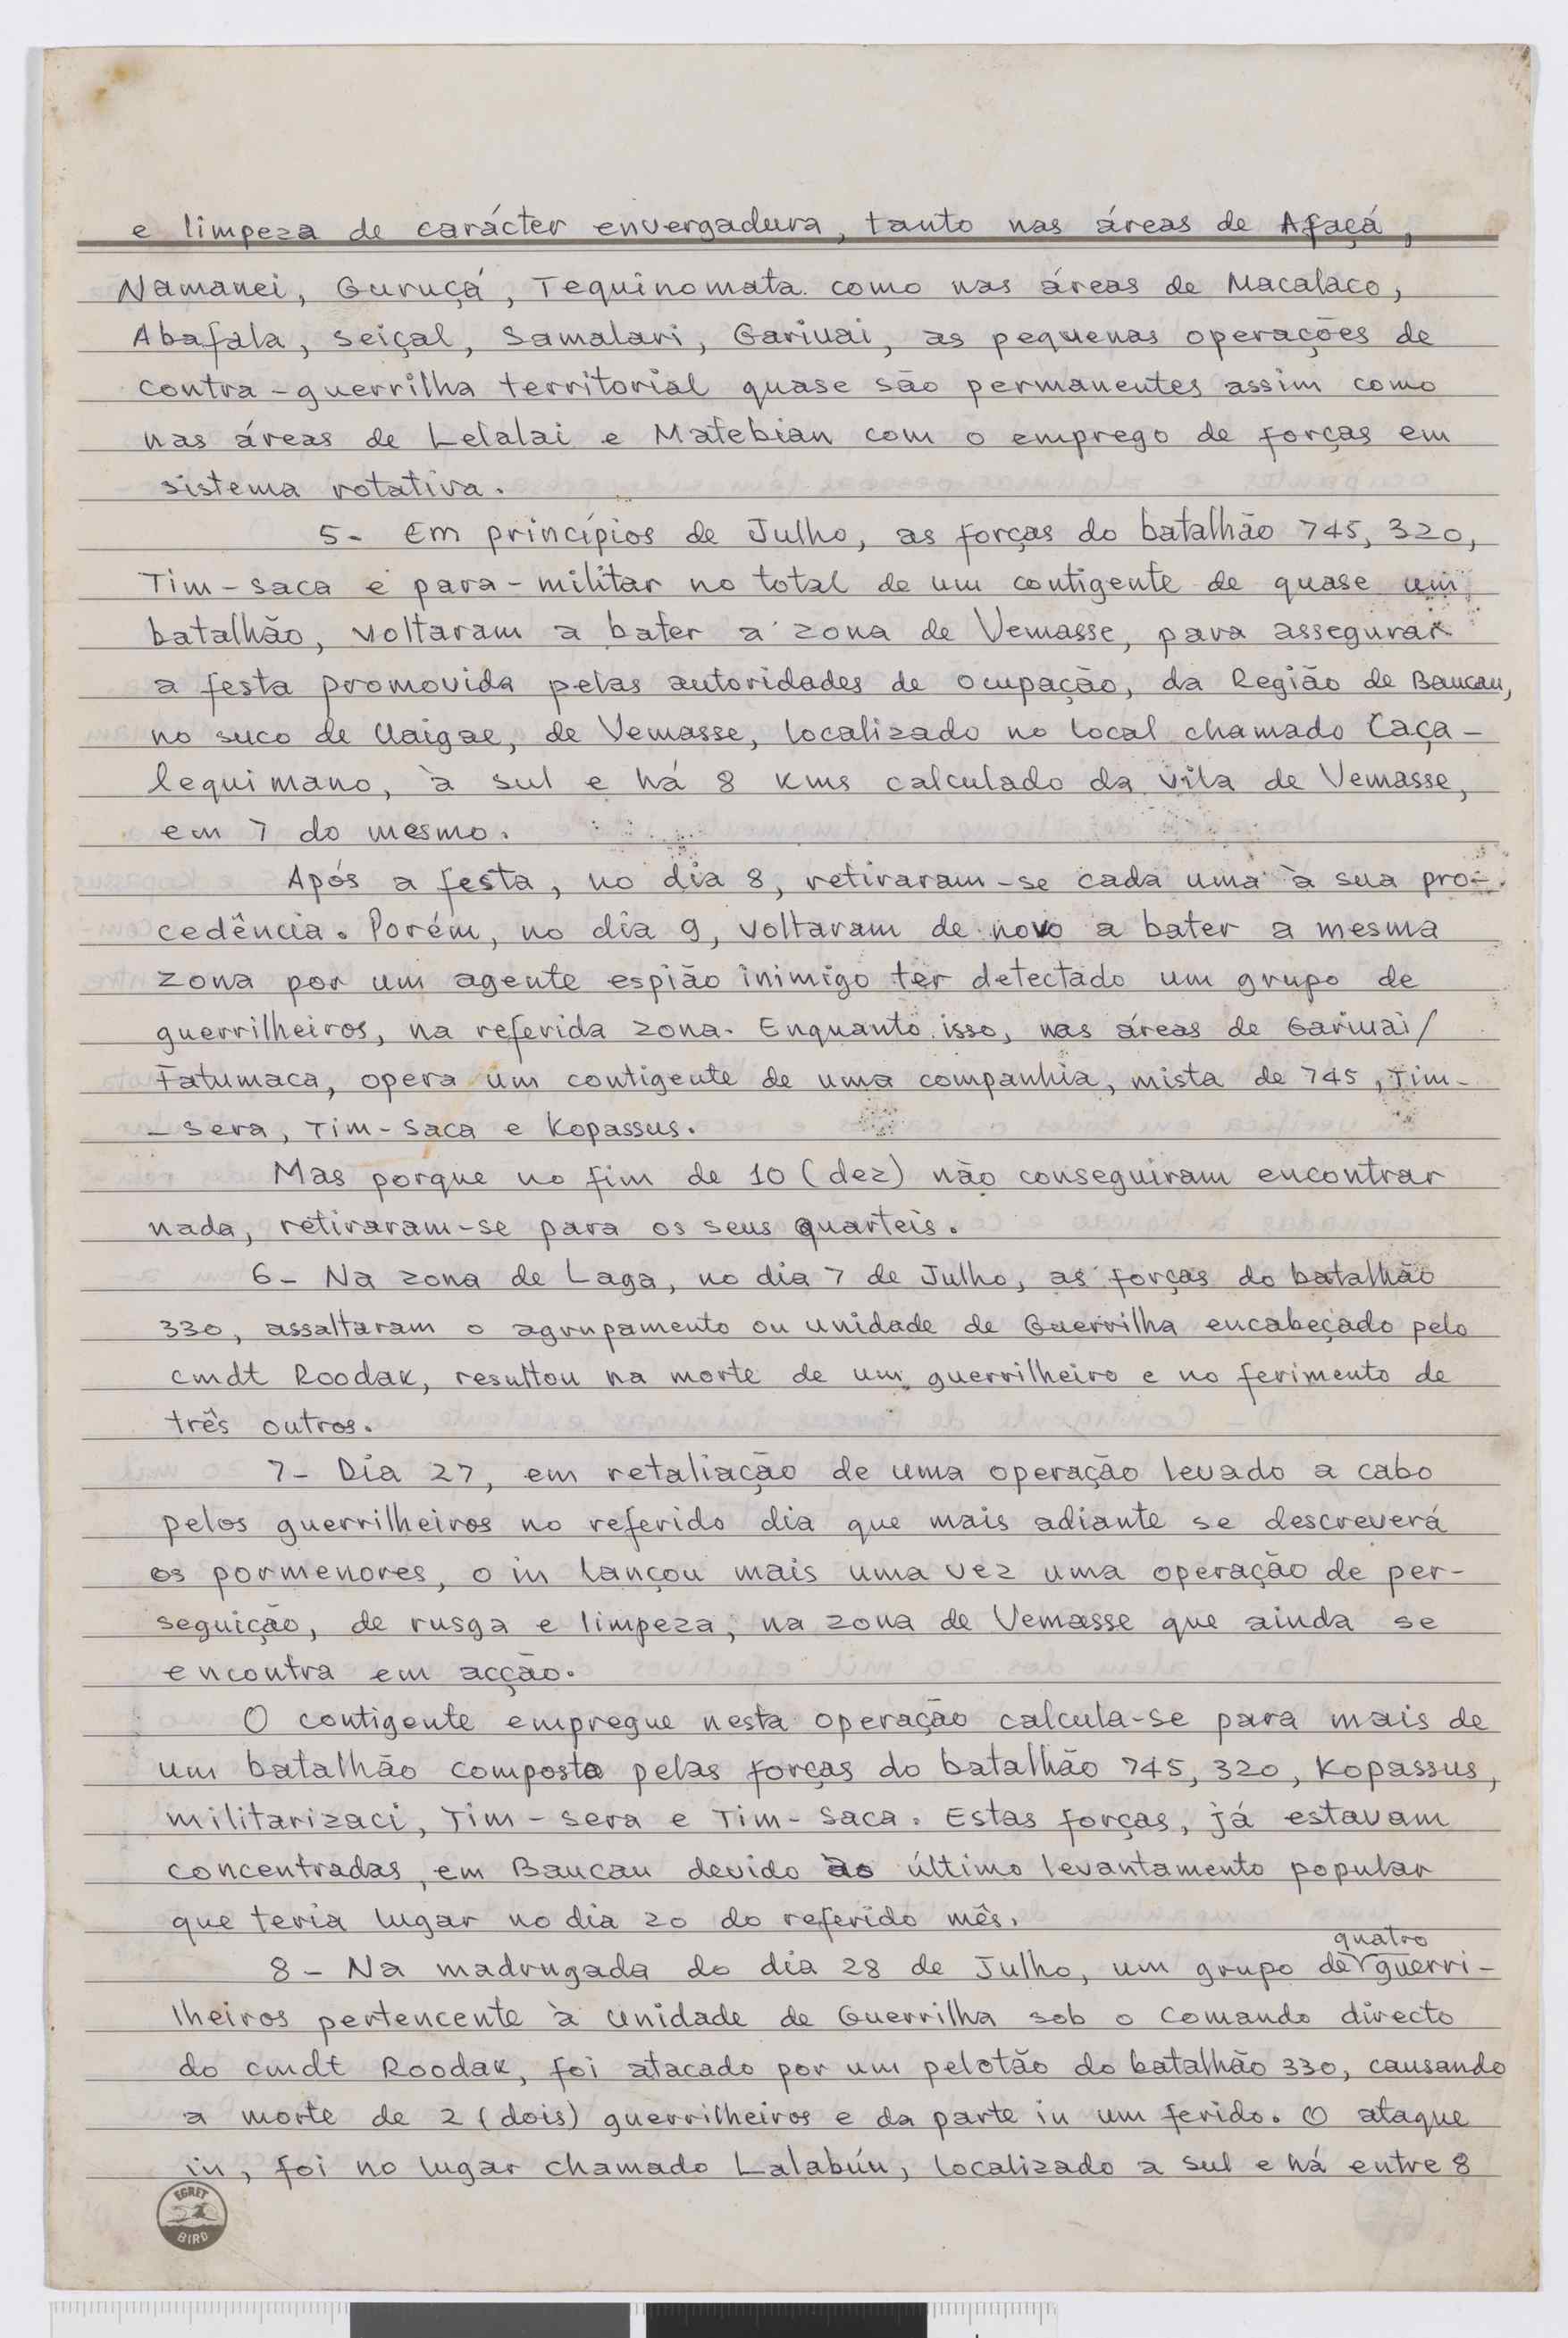 e limpeza de carácter envergadura, tanto nas áreas de Afaçá,
Namanei, Guruçá, Tequinomata como nas áreas de Macalaco,
Abafala, Seiçal, Samalari, Gariuai, as pequenas operações de
contra-guerrilha territorial quase são permanentes assim como
nas áreas de Lelalai e Matebian com o emprego de forças em
sistema rotativa.
5- Em princípios de Julho, as forças do batalhão 745, 320,
Tim-saca e para-militar no total de um contigente de quase um
batalhão, voltaram a bater a zona de Vemasse, para assegurar
a festa promovida pelas autoridades de ocupação, da Região de Baucau,
no suco de Uaigae, de Vemasse, localizado no local chamado Caça-
lequimano, à sul e há 8 kms calculado da vila de Vemasse,
em 7 do mesmo.
Após a festa, no dia 8, retiraram-se cada uma à sua pro-
cedência. Porém, no dia 9, voltaram de novo a bater a mesma
zona por um agente espião inimigo ter detectado um grupo de
guerrilheiros, na referida zona. Enquanto isso, nas áreas de Gariuai/
Fatumaca, opera um contigente de uma companhia, mista de 745, Tim-
-sera, Tim-Saca e Kopassus.
Mas porque no fim de 10 (dez) não conseguiram encontrar
nada, retiraram-se para os seus quarteis.
6- Na zona de Laga, no dia 7 de Julho, as forças do batalhão
330, assaltaram o agrupamento ou unidade de Guerrilha encabeçado pelo
cmdt Roodak, resultou na morte de um guerrilheiro e no ferimento de
três outros.
7- Dia 27, em retaliação de uma operação levado a cabo
pelos guerrilheiros no referido dia que mais adiante se descreverá
os pormenores, o in lançou mais uma vez uma operação de per-
seguição, de rusga e limpeza, na zona de Vemasse que ainda se
encontra em acção.
O contigente empregue nesta operação calcula-se para mais de
um batalhão composto pelas forças do batalhão 745, 320, Kopassus,
militarizaci, Tim-sera e Tim-Saca. Estas forças, já estavam
concentradas, em Baucau devido ao último levantamento popular
que teria lugar no dia 20 do referido mês.
quatro
8- Na madrugada do dia 28 de Julho, um grupo de guerri-
lheiros pertencente à Unidade de Guerrilha sob o Comando directo
do cmdt Roodak, foi atacado por um pelotão do batalhão 330, causando
a morte de 2 (dois) guerrilheiros e da parte in um ferido. O ataque
in, foi no lugar chamado Lalabún, localizado a sul e há entre 8
EGRET
BIRD